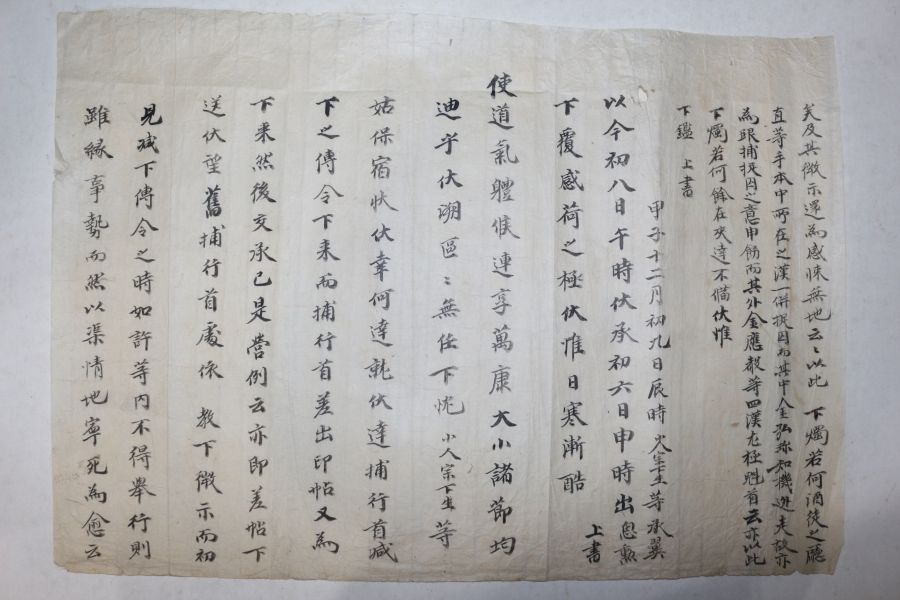 矣及其微示還為感悚無地云々以此 下燭若何酒徒之廳
直等手本中所在之漢一併捉囚而其中金弘弥知機逃失故亦
為跟捕捉囚之意申飭而其外金應毅等四漢尤極魁首云亦以此
下燭若何餘在夾達不備伏惟
下鑑 上書
甲子十二月初九日辰時 等承翼
以今初八日午時伏承初六日申時出息勲
上書
下覆感荷之極伏惟日寒漸酷
使道氣體候連享萬康大小諸節均
迪乎伏溯區々無任下忱 小人宗下生等
姑保宿狀伏幸何達就伏達捕行首減
下之傳令下来而捕行首差出印帖又為
下来然後交承已是嘗例云亦即差帖下
送伏望舊捕行首處依 教下微示而初
見減下傳令之時如許等内不得舉行則
雖緣事勢而然以渠情地寧死為愈云